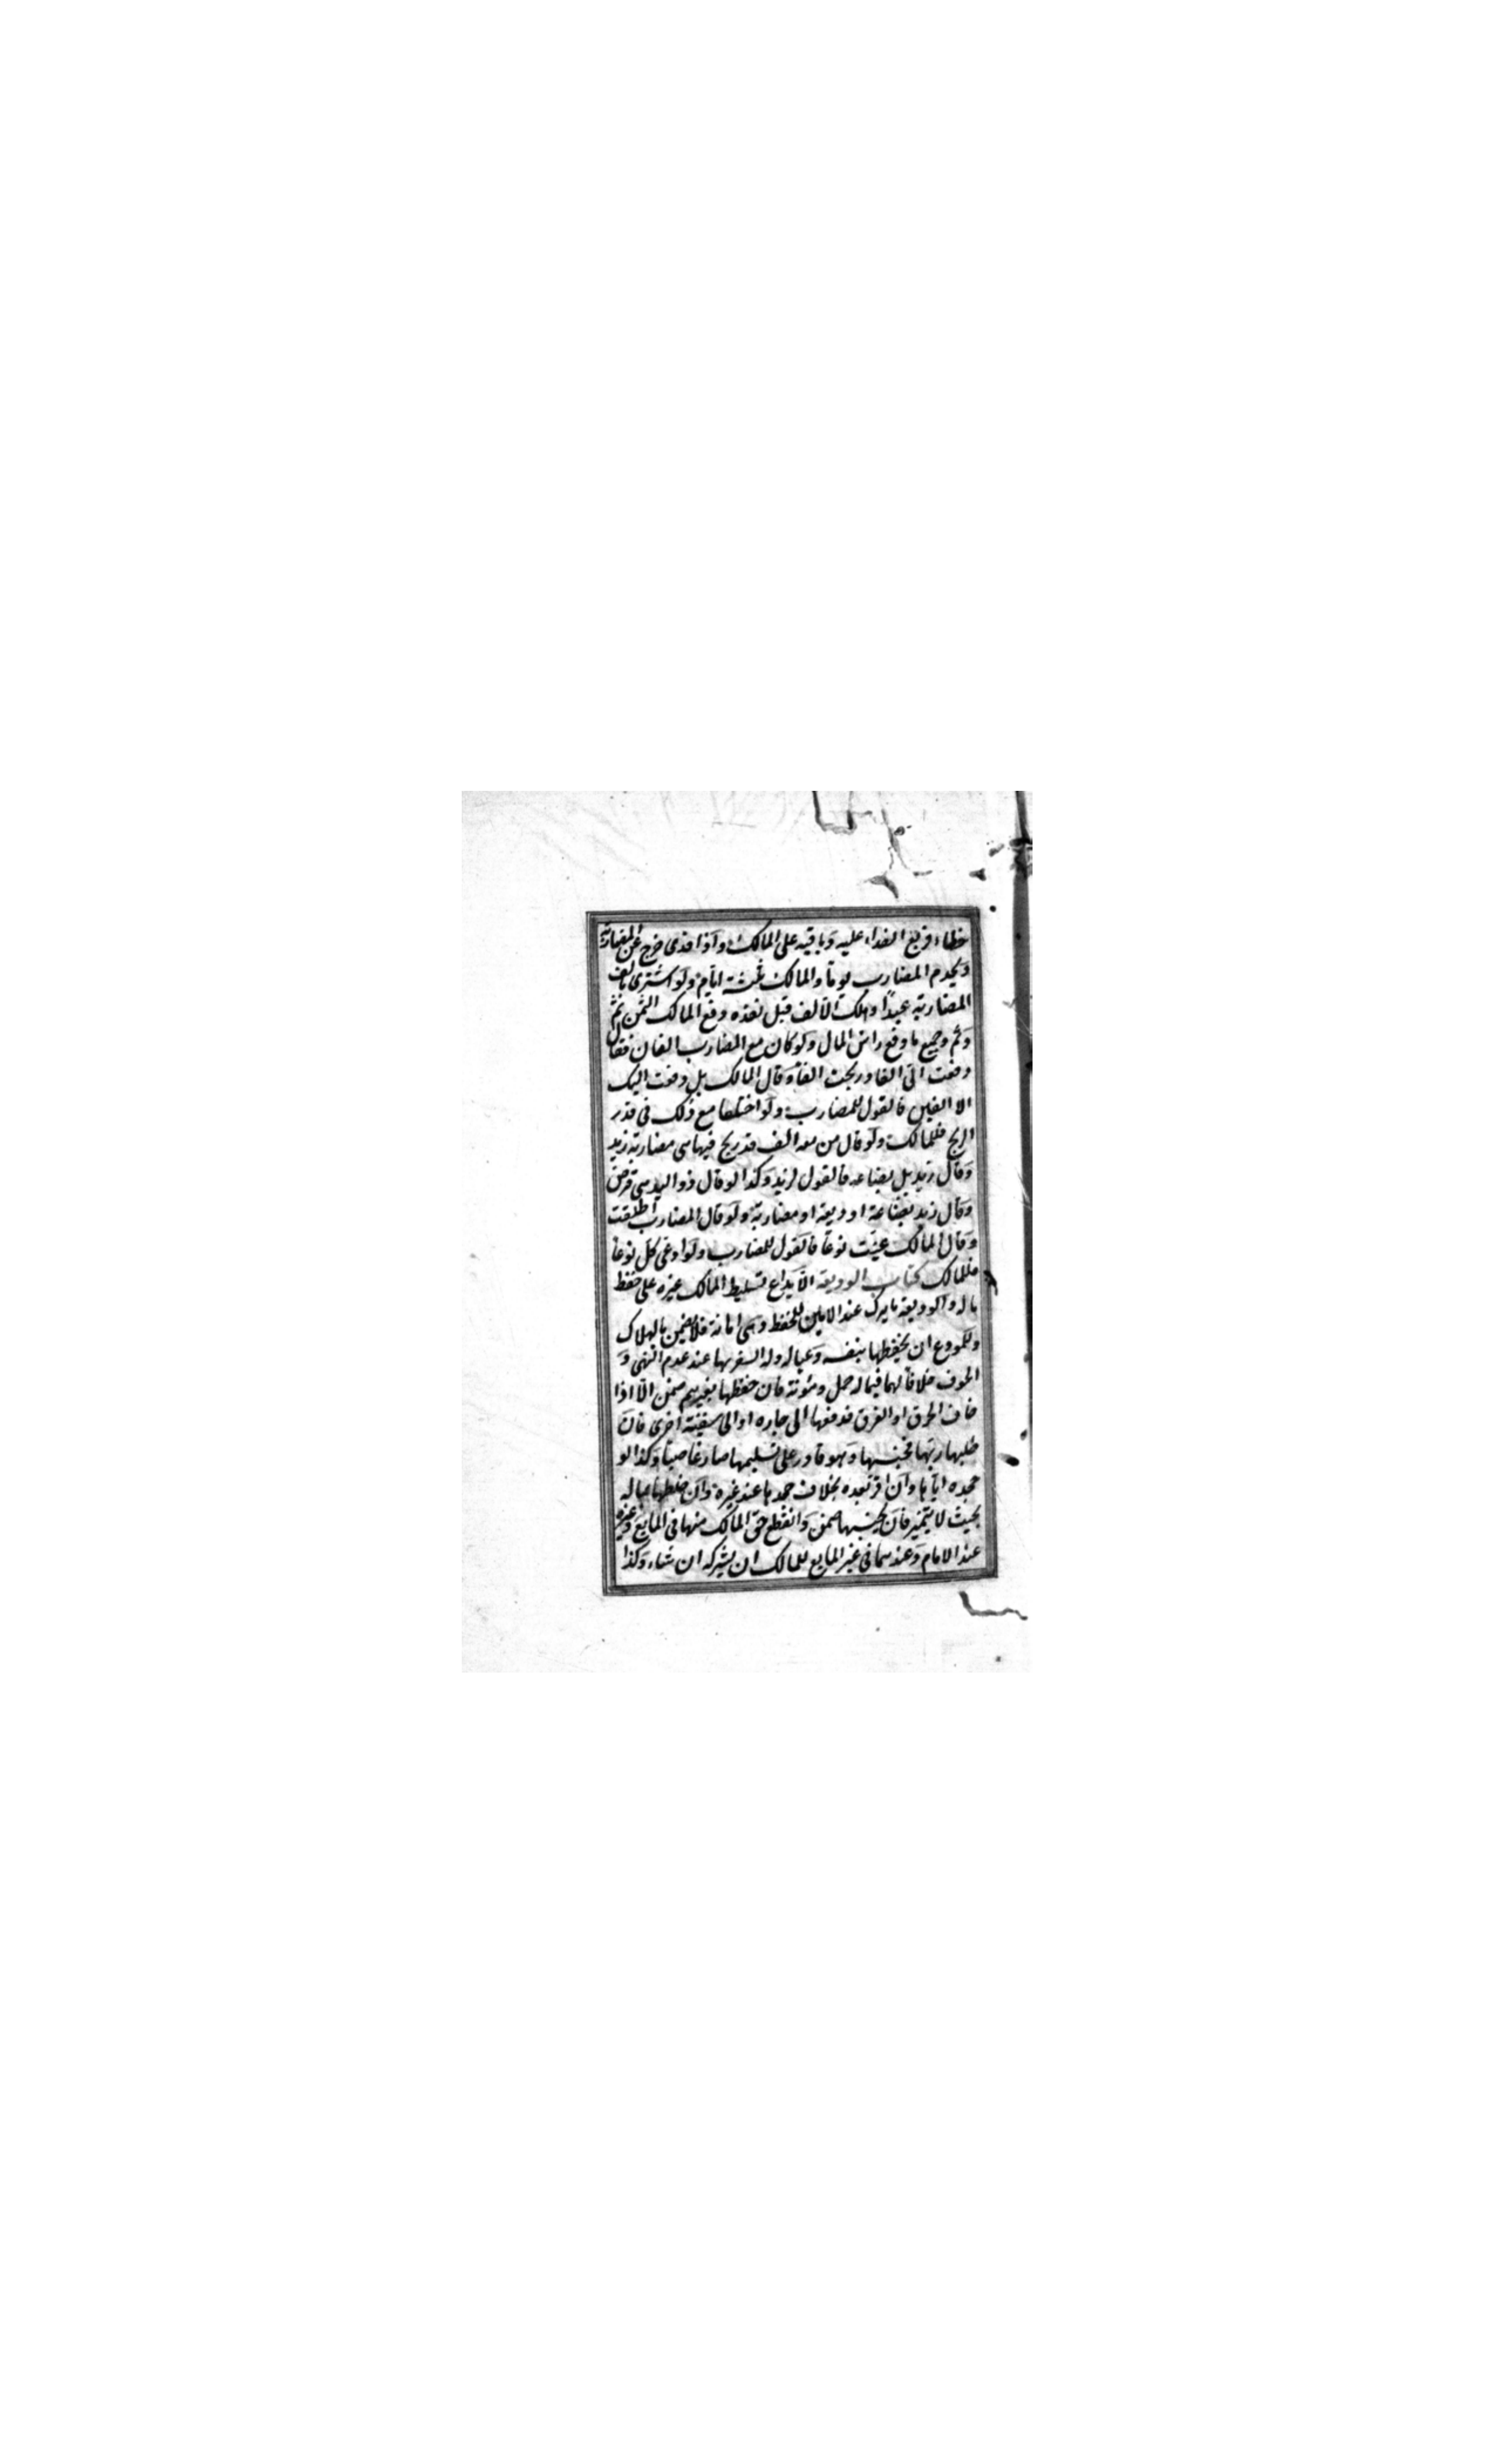 خطاء فربع الفداء عليه وباقيه على المالك واذا فدى خرج عن المضاربة
ويخدم المضارب يوما والمالك ثلثة ايام ولو اشترى بالف
المضاربة عبدا وهلك الالف قبل نقده دفع المالك الثمن ثم
وثم وجميع ما دفع راس المال ولو كان مع المضارب الفان فقال
دفعت الى الفا وربحت الفا وقال المالك بل دفعت اليك
الا الفين فالقول للمضارب ولو اختلفا مع ذلك فى قدر
الربح فللمالك ولو قال من معه الف قد ربح فيها هى مضاربة زيد
وقال زيد بل بضاعة فالقول لزيد وكذا لو قال ذو اليد هى قرض
وقال زيد بضاعة او وديعة او مضاربة ولو قال المضارب اطلقت
وقال المالك عينت نوعا فالقول للمضارب ولو ادعى كل نوعا
فللمالك كتاب الوديعة الايداع تسليط المالك غيره على حفظ
ماله والوديعة ما يترك عند الامين للحفظ وهى امانة فلا يضمن بالهلاك
وللمودع ان يحفظها بنفسه وعياله وله السفر بها عند عدم النهى و
الخوف خلافا لهما فيما له حمل ومئونة فان حفظها بغيرهم ضمن الا اذا
خاف الحرق او الغرق فدفعها الى جاره او الى سفينة اخرى فان
طلبها ربها فحبسها وهو قادر على تسليمها صار غاصبا وكذا لو
جحده اياها وان اقر بعده بخلاف جحدها عند غيره وان خلطها بماله
بحيث لا يتميز فان بجنسها ضمن وانقطع حق المالك منها فى المايع وغيره
عند الامام وعندهما فى غير المايع للمالك ان يشركه ان شاء وكذا